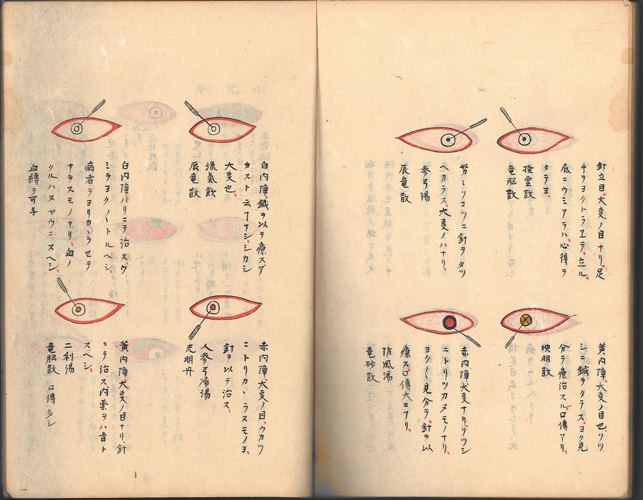 針立目大変ノ目ナリ、足
チヤヨクトラエテ、立ル
底ニウミアラハ心得ヲ
タテヨ、
撥雲散
竜胆散
努々ミコツニ針ヲタツ
ヘカラス、大変ノハナリ、
参弓湯
辰竜散
黄内障、大変ノ目也、ソツ
シニ鍼ヲタテズ、ヨク見
分テ療治スル口傳アリ、
映明散
赤内障大変ナリ、ソツシ
ニトリツカヌモノナリ、
ヨクヽ見分テ針ヲ以
療ス口傳大コアリ、
佐風湯
竜砂散
白内障鍼ヲ以テ療スグ
カスト云フナシ、シカシ
大変也、
洗氣飲
辰竜散
白内障ハリニテ治スグ
ミシヲヨクヽトルベシ、
病者ニヨリカヽラセテ
ナヲスモノナリ、血ノ
クルハヌヤウニスベシ、
血縛ヲ可与
赤内障、大変ノ目、ウカツ
ニトリカヽラスモノヨ、
針ヲ以テ治ス、
人参弓帰湯
光明丹
黄内障大変ノ目ナリ、針
ニテ治ス内薬ヲハ首ト
スヘシ、
二利湯
竜胆散 口傳多シ